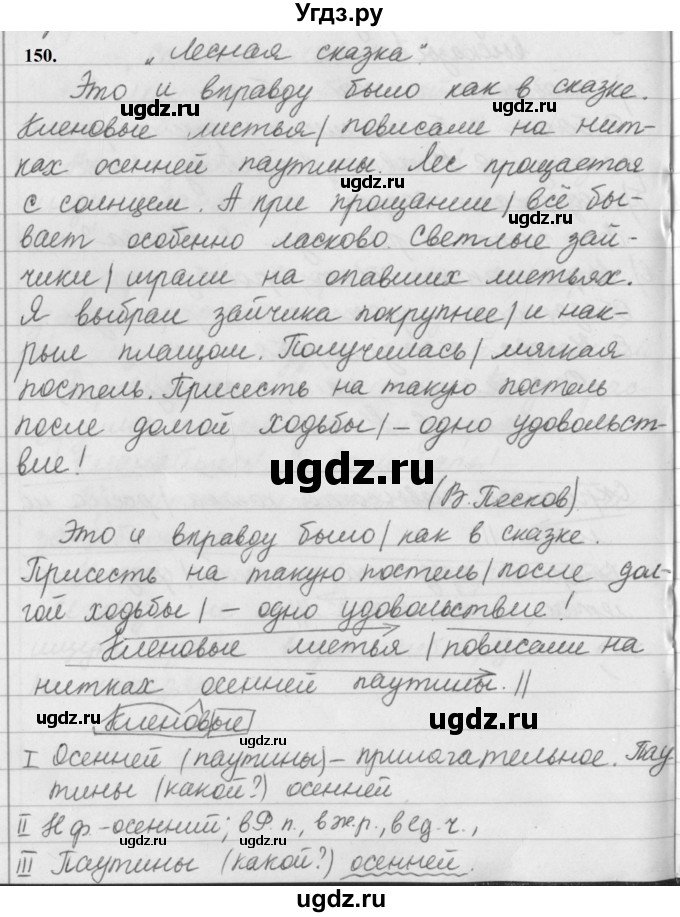 Угдз.ру
150. „Лесная сказка".
Это и вправду было как в сказке.
Кленовые листья | повисали на нит-
ках осенней паутины. Лес прощается
с солнцем. А при прощании | всё бы-
вает особенно ласково. Светлые зай-
чики | играли на опавших листьях.
Я выбрал зайчика покрупнее | и нак-
рыл плащом. Получилась | мягкая
постель. Присесть на такую постель
после долгой ходьбы | – одно удовольст-
вие!
(В. Песков)
Это и вправду было | как в сказке.
Присесть на такую постель | после дол-
гой ходьбы | – одно удовольствие!
Кленовые листья | повисали на
нитках осенней паутины. ||
Кленовые
I Осенней (паутины) – прилагательное. Пау-
тины (какой?) осенней
II Н.ф.-осенний; в Р.п., в ж.р., в ед.ч.,
III Паутины (какой?) осенней.
ugdz.ru
ugdz.ru
ugdz.ru
ugdz.ru
ugdz.ru
ugdz.ru
ugdz.ru
ugdz.ru
ugdz.ru
ugdz.ru
ugdz.ru
ugdz.ru
ugdz.ru